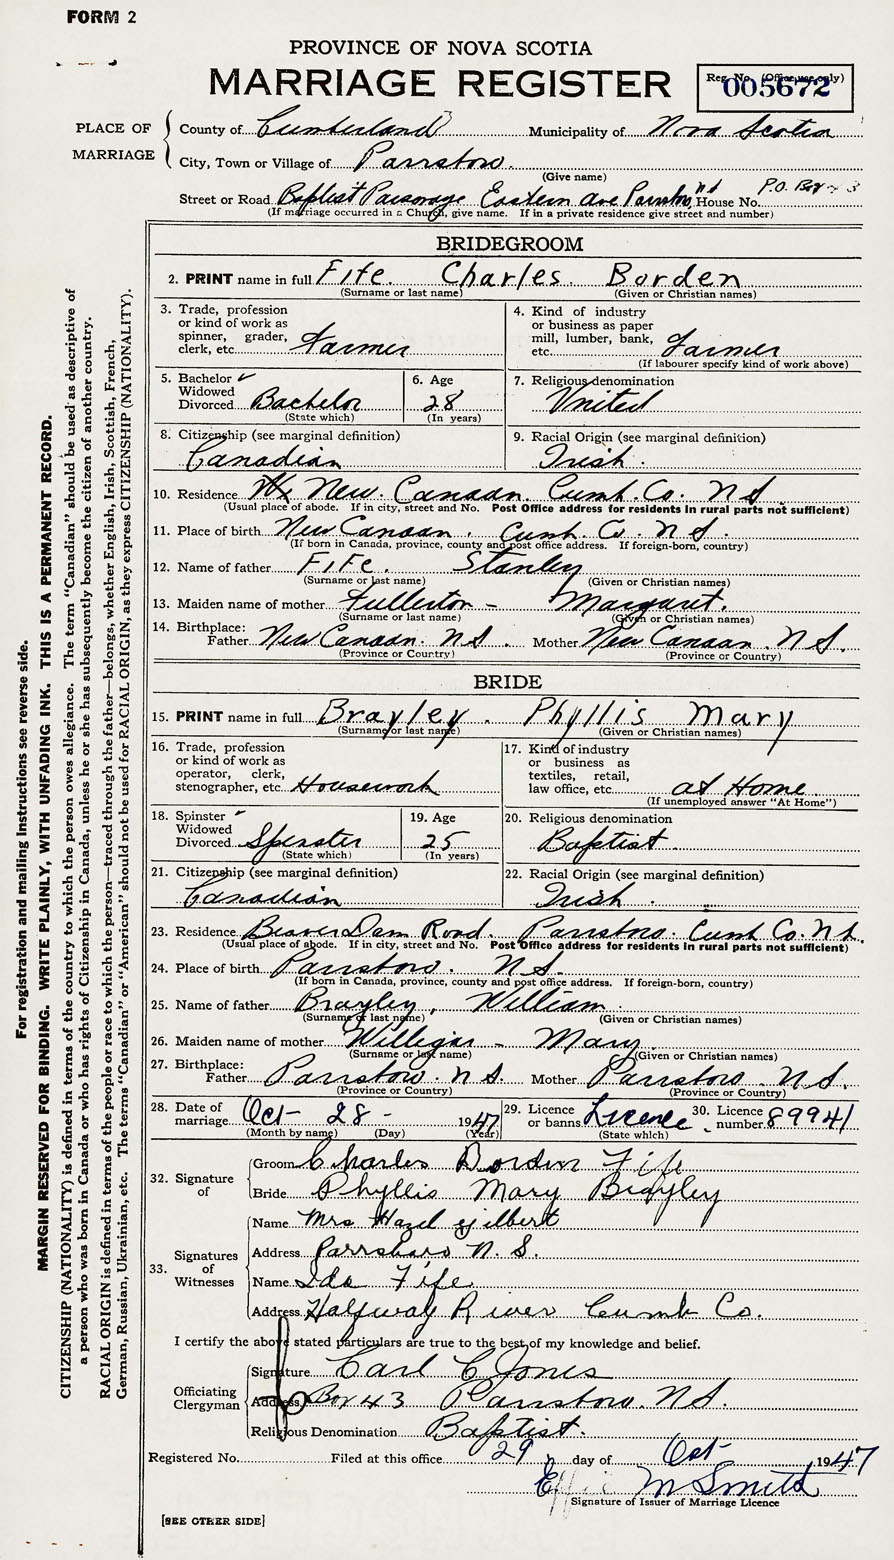 FORM 2
PROVINCE OF NOVA SCOTIA
MARRIAGE REGISTER
Reg. No. (Office use only)
005672
PLACE OF MARRIAGE
County of Cumberland Municipality of Nova Scotia
City, Town or Village of Parrsboro.
(Give name)
Street or Road Baptist Parsonage Eastern Ave Parrsboro, NS House No. P.O. Box 43
(If marriage occurred in a Church, give name. If in a private residence give street and number)
BRIDEGROOM
2. PRINT name in full Fife. Charles. Borden
(Surname or last name) (Given or Christian names)
3. Trade, profession or kind of work as spinner, grader, clerk, etc. Farmer
4. Kind of industry or business as paper mill, lumber, bank, etc. Farmer
(If labourer specify kind of work above)
5. Bachelor ✓ Widowed Divorced Bachelor
(State which)
6. Age 28
(In years)
7. Religious denomination United
8. Citizenship (see marginal definition) Canadian
9. Racial Origin (see marginal definition) Irish.
10. Residence New. Canaan. Cumb. Co. N S
(Usual place of abode. If in city, street and No. Post Office address for residents in rural parts not sufficient)
11. Place of birth New Canaan. Cumb. Co. N S.
(If born in Canada, province, county and post office address. If foreign-born, country)
12. Name of father Fife. Stanley
(Surname or last name) (Given or Christian names)
13. Maiden name of mother Fullerton - Margaret.
(Surname or last name) (Given or Christian names)
14. Birthplace: Father New Canaan. N S. Mother New Canaan. N S.
(Province or Country) (Province or Country)
BRIDE
15. PRINT name in full Brayley. Phyllis Mary
(Surname or last name) (Given or Christian names)
16. Trade, profession or kind of work as operator, clerk, stenographer, etc. Housework
17. Kind of industry or business as textiles, retail, law office, etc. at Home
(If unemployed answer "At Home")
18. Spinster ✓ Widowed Divorced Spinster
(State which)
19. Age 25
(In years)
20. Religious denomination Baptist.
21. Citizenship (see marginal definition) Canadian
22. Racial Origin (see marginal definition) Irish.
23. Residence Beaver Dam Road. Parrsboro. Cumb Co. N S.
(Usual place of abode. If in city, street and No. Post Office address for residents in rural parts not sufficient)
24. Place of birth Parrsboro. N S.
(If born in Canada, province, county and post office address. If foreign-born, country)
25. Name of father Brayley, William.
(Surname or last name) (Given or Christian names)
26. Maiden name of mother Willigar - Mary
(Surname or last name) (Given or Christian names)
27. Birthplace: Father Parrsboro. N S. Mother Parrsboro. N S.
(Province or Country) (Province or Country)
28. Date of marriage Oct - 28 - 1947
(Month by name) (Day) (Year)
29. Licence or banns Licence
(State which)
30. Licence number 89941
32. Signature of
Groom Charles Borden Fife
Bride Phyllis Mary Brayley
33. Signatures of Witnesses
Name Mrs Hazel Gilbert
Address Parrsboro N. S.
Name Ida Fife
Address Halfway River Cumb Co.
I certify the above stated particulars are true to the best of my knowledge and belief.
Officiating Clergyman
Signature Carl C Jones
Address Box 43 Parrsboro. N S.
Religious Denomination Baptist.
Registered No. Filed at this office 29 day of Oct 1947
Effie M Smith
Signature of Issuer of Marriage Licence
[SEE OTHER SIDE]
For registration and mailing instructions see reverse side.
MARGIN RESERVED FOR BINDING. WRITE PLAINLY, WITH UNFADING INK. THIS IS A PERMANENT RECORD.
CITIZENSHIP (NATIONALITY) is defined in terms of the country to which the person owes allegiance. The term "Canadian" should be used as descriptive of
a person who was born in Canada or who has rights of Citizenship in Canada, unless he or she has subsequently become the citizen of another country.
RACIAL ORIGIN is defined in terms of the people or race to which the person—traced through the father—belongs, whether English, Irish, Scottish, French,
German, Russian, Ukrainian, etc. The terms "Canadian" or "American" should not be used for RACIAL ORIGIN, as they express CITIZENSHIP (NATIONALITY).